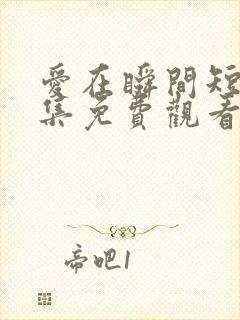 愛在瞬間短
集免費觀看
帝吧1